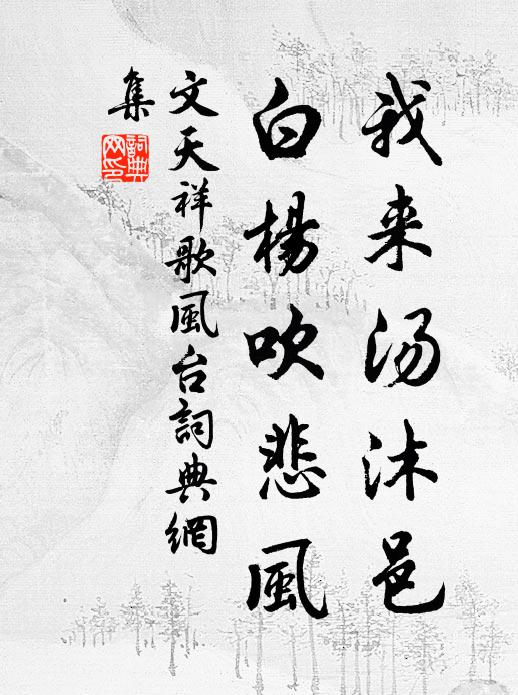 我来汤沐邑
白楊吹悲風
文天祥歌風台詞典網
集
詞典
网印